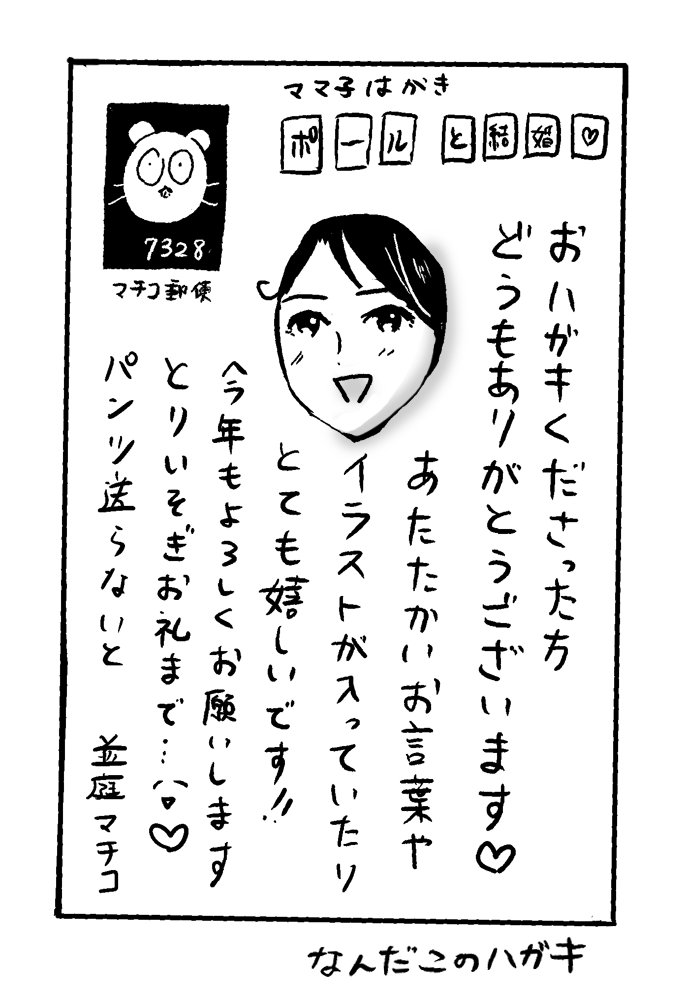 ママ子はがき
ポールと結婚♡
7328
マチコ郵便
おハガキくださった方
どうもありがとうございます♡
あたたかいお言葉や
イラストが入っていたり
とても嬉しいです!!
今年もよろしくお願いします
とりいそぎお礼まで…♡
パンツ送らないと
並庭マチコ
なんだこのハガキ